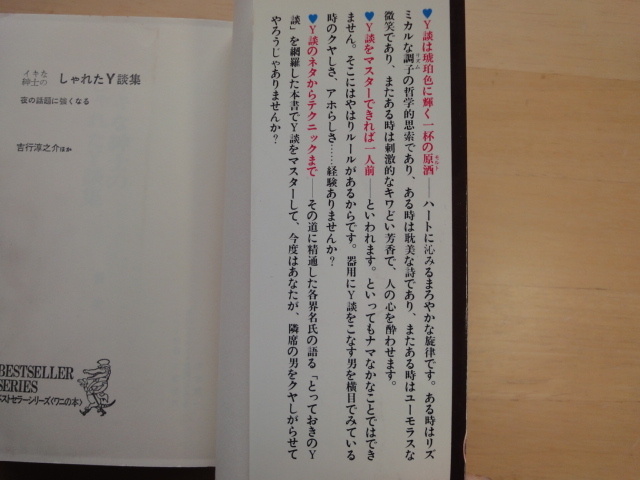 イキな
紳士の しゃれたY談集
夜の話題に強くなる
吉行淳之介ほか
BESTSELLER
SERIES
ベストセラーシリーズ〈ワニの本〉
♥Y談は琥珀色に輝く一杯の原酒モルト――ハートに沁みるまろやかな旋律です。ある時はリズ
ミカルな調子リズムの哲学的思索であり、ある時は耽美な詩であり、またある時はユーモラスな
微笑であり、またある時は刺激的なキワどい芳香で、人の心を酔わせます。
♥Y談をマスターできれば一人前――といわれます。といってもナマなかなことではでき
ません。そこにはやはりルールがあるからです。器用にY談をこなす男を横目でみている
時のクヤしさ、アホらしさ……経験ありませんか？
♥Y談のネタからテクニックまで――その道に精通した各界名氏の語る「とっておきのY
談」を網羅した本書でY談をマスターして、今度はあなたが、隣席の男をクヤしがらせて
やろうじゃありませんか？